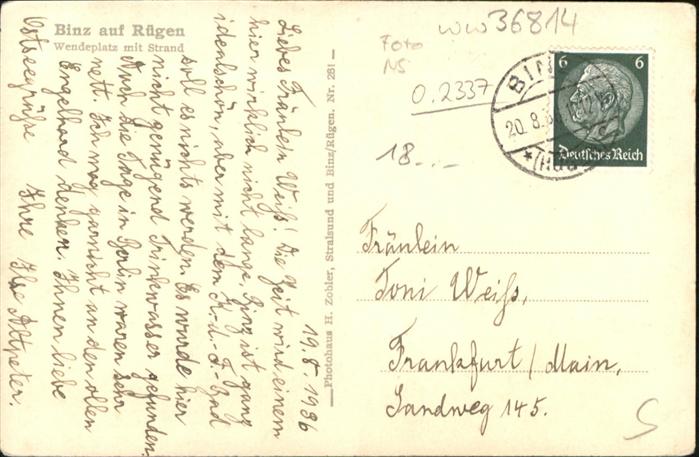 Binz auf Rügen
Wendeplatz mit Strand
19.8.1936
Liebes Fräulein Weiß! Die Zeit wird einem
hier wirklich nicht lange, Binz ist ganz
idealschön, aber mit dem K.-d.-F.-Bad
soll es nichts werden. Es wurde hier
nicht genügend Trinkwasser gefunden.
Auch die Tage in Berlin waren sehr
nett. Ich mag garnicht an den ollen
Engelhard denken. Ihnen liebe
Ostseegrüße Ihre Ilse Altpeter.
Photohaus H. Zobler, Stralsund und Binz/Rügen. Nr. 281
WW36814
Foto
NS
0.2337
18.-.-
6 6
Deutsches Reich
BIN
20.8.3
(RÜG
Fräulein
Toni Weiß,
Frankfurt/Main,
Sandweg 145.
S